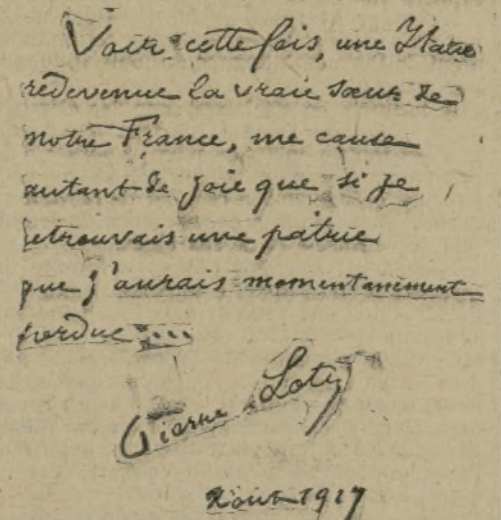 Voir cette fois, une Italie
redevenue la vraie sœur de
notre France, me cause
autant de joie que si je
retrouvais une patrie
que j'aurais momentanément
perdue...
Pierre Loti
Août 1917